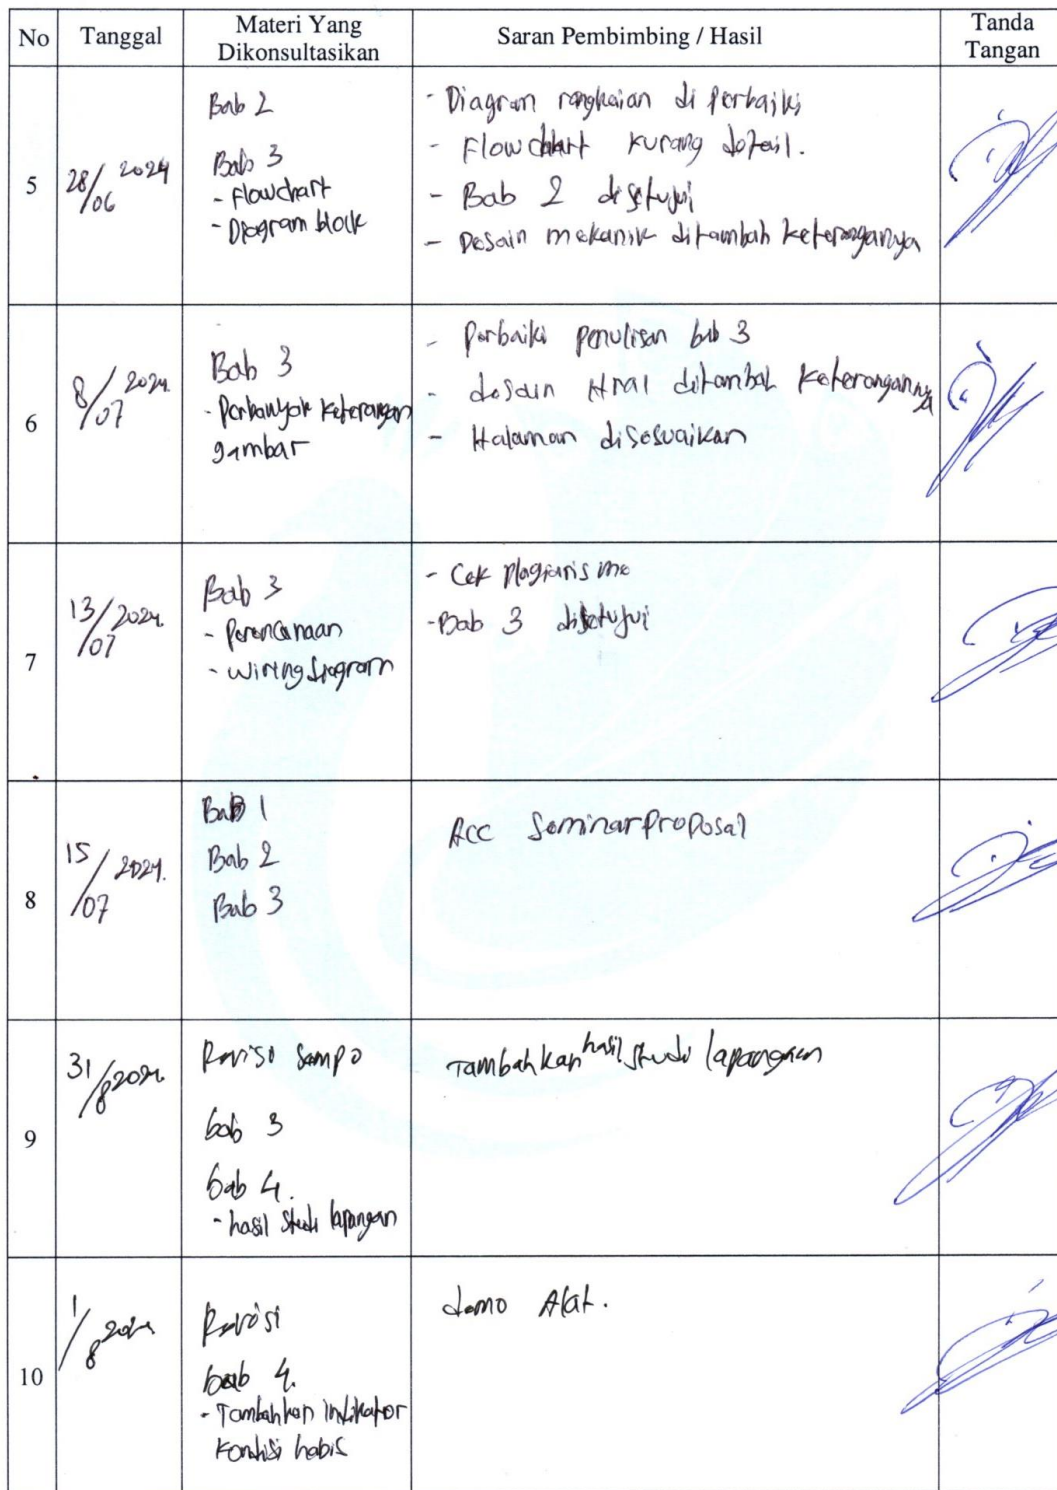 No Tanggal Materi Yang Dikonsultasikan Saran Pembimbing / Hasil Tanda Tangan
5
28/06 2024
Bab 2
Bab 3
- Flowchart
- Diagram block
- Diagram rangkaian di perbaiki
- Flowchart kurang detail.
- Bab 2 disetujui
- Desain mekanik ditambah keteranganya
6
8/07 2024.
Bab 3
- Perbanyak keterangan
gambar
- Perbaiki penulisan bab 3
- desain ditambah keterangannya
- Halaman disesuaikan
7
13/07 2024.
Bab 3
- Perencanaan
- Wiring diagram
- Cek plagiarisme
- Bab 3 disetujui
8
15/07 2024.
Bab 1
Bab 2
Bab 3
Acc Seminar Proposal
9
31/8 2024.
Revisi Sempo
bab 3
bab 4.
- hasil studi lapangan
Tambahkan hasil studi lapangan
10
1/8 2024
Revisi
bab 4.
- Tambahkan indikator
kondisi habis
demo Alat.